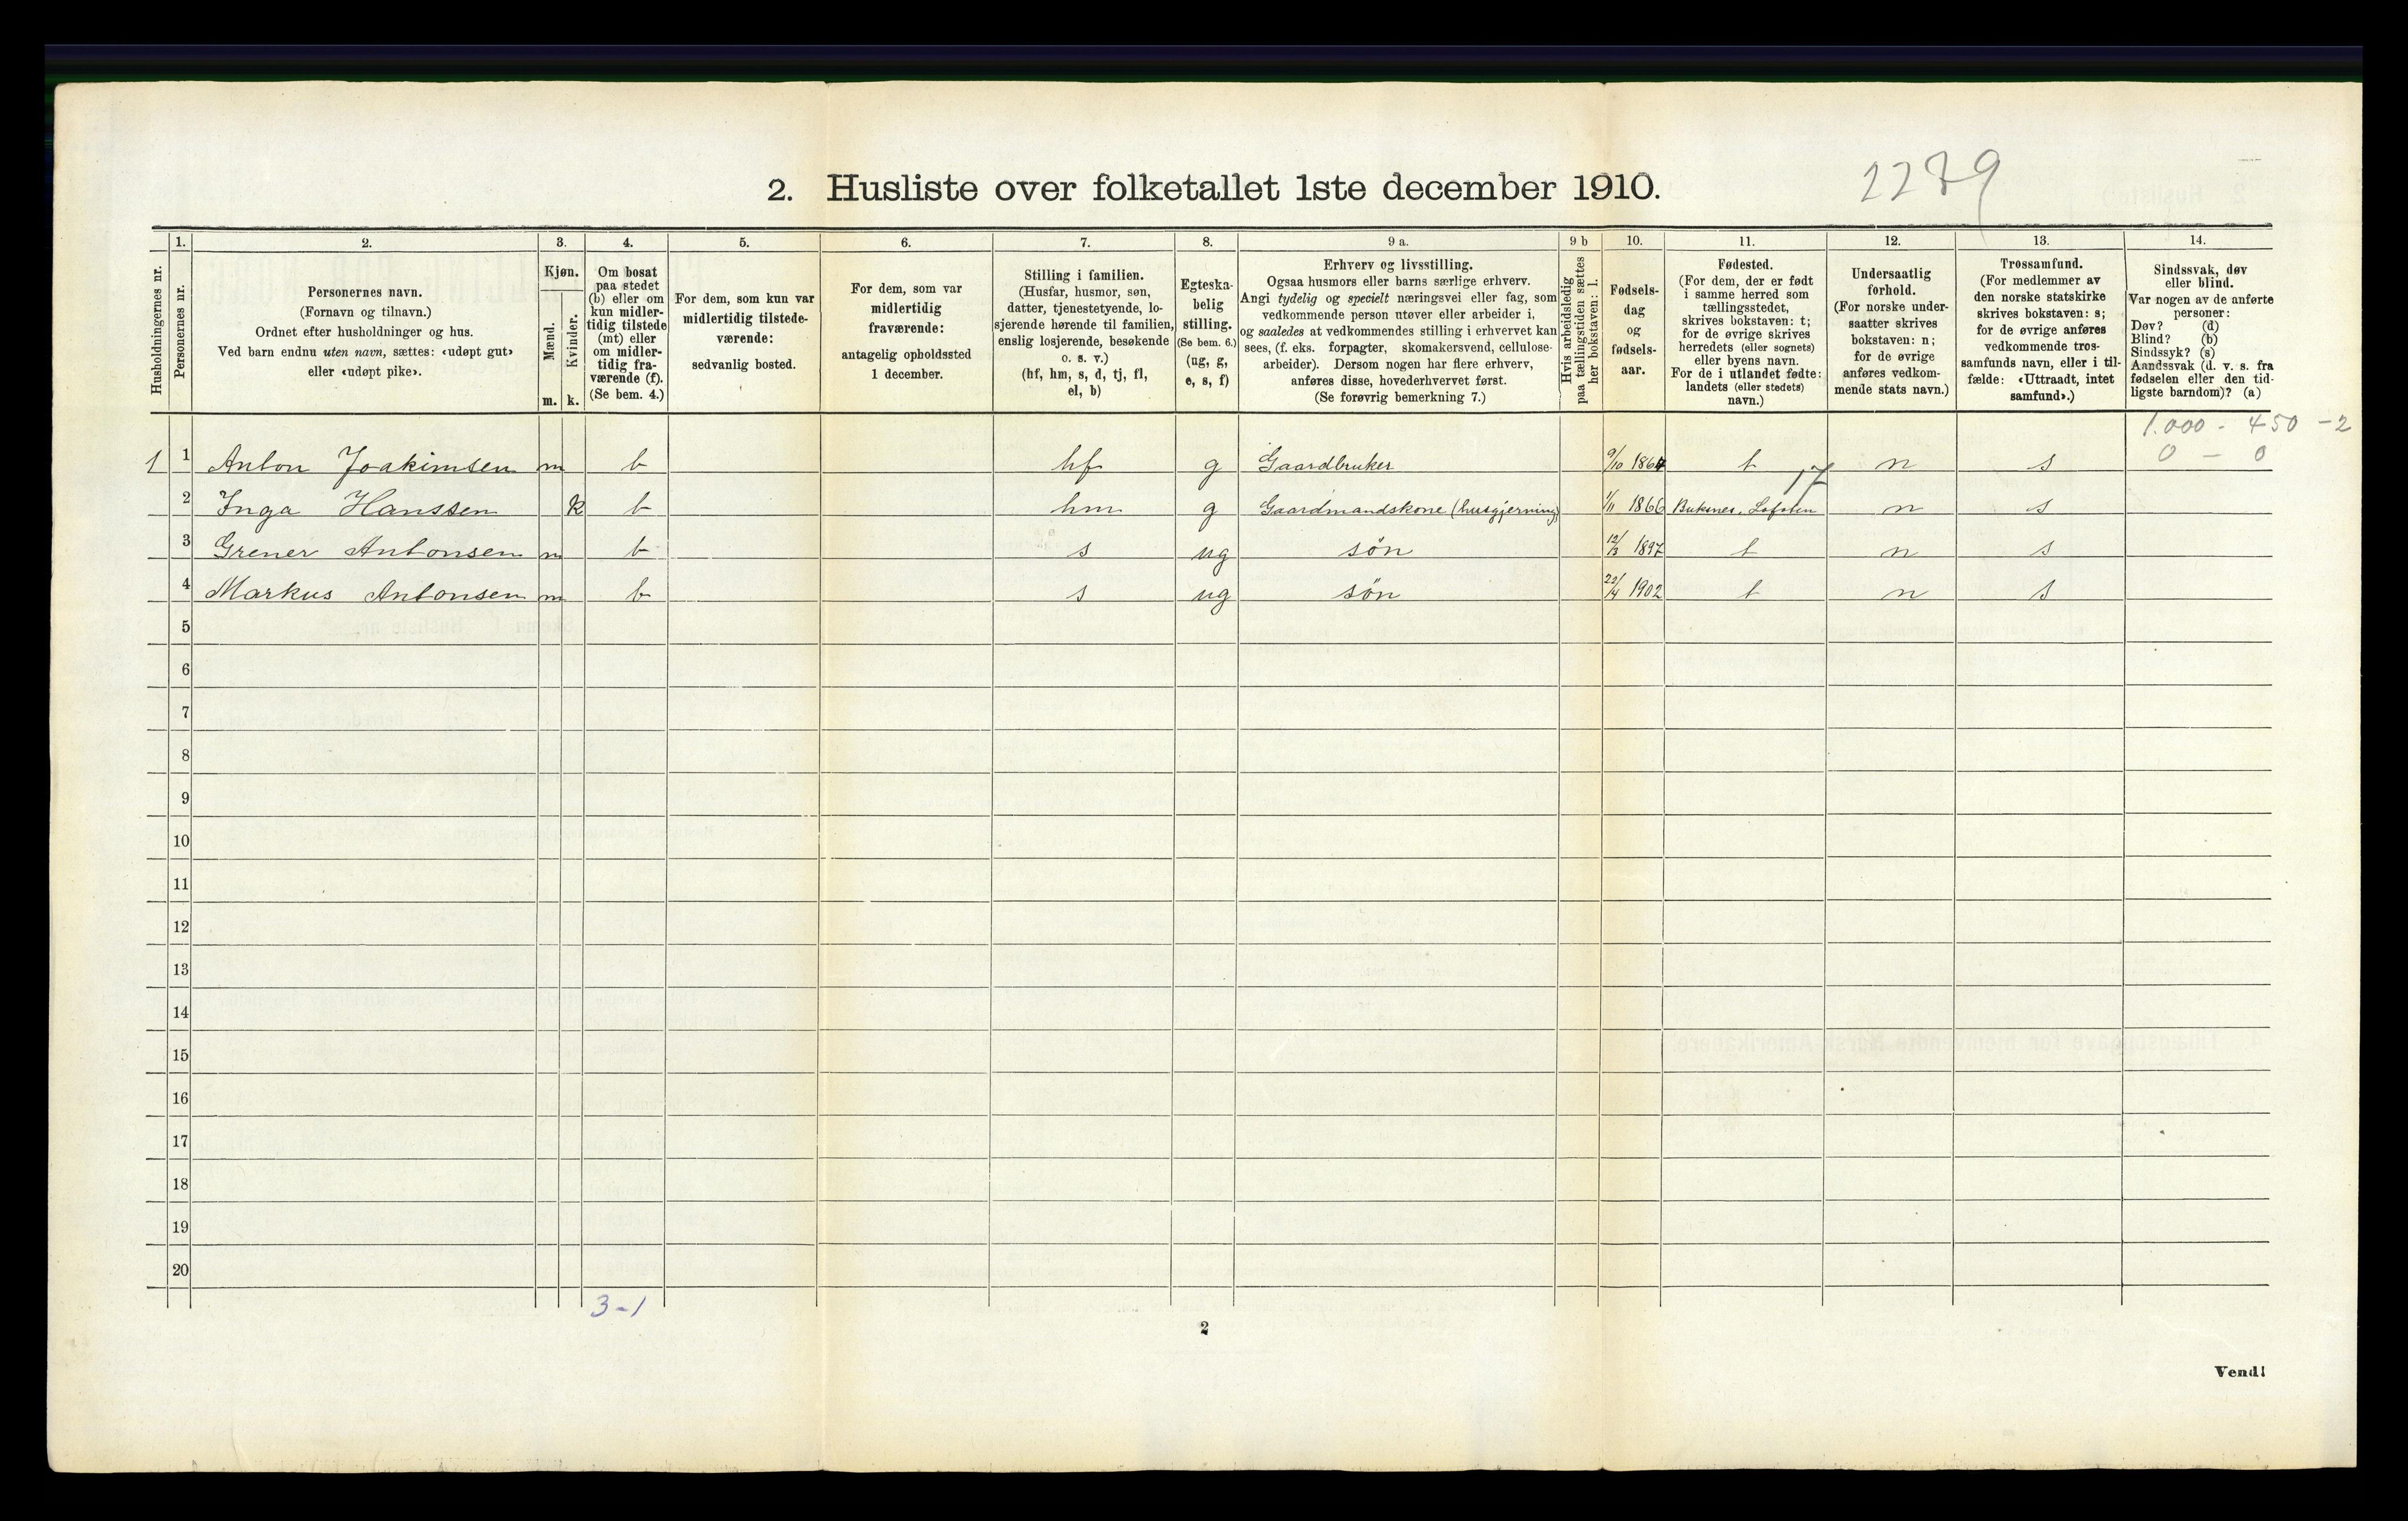 2. Husliste over folketallet 1ste december 1910.
2279
Husholdningernes nr.
1.
Personernes nr.
2.
Personernes navn.
(Fornavn og tilnavn.)
Ordnet efter husholdninger og hus.
Ved barn endnu uten navn, sættes: «udøpt gut»
eller «udøpt pike».
3.
Kjøn.
Mænd.
Kvinder.
m. k.
4.
Om bosat
paa stedet
(b) eller om
kun midler-
tidig tilstede
(mt) eller
om midler-
tidig fra-
værende (f).
(Se bem. 4.)
5.
For dem, som kun var
midlertidig tilstede-
værende:
sedvanlig bosted.
6.
For dem, som var
midlertidig
fraværende:
antagelig opholdssted
1 december.
7.
Stilling i familien.
(Husfar, husmor, søn,
datter, tjenestetyende, lo-
sjerende hørende til familien,
enslig losjerende, besøkende
o. s. v.)
(hf, hm, s, d, tj, fl,
el, b)
8.
Egteska-
belig
stilling.
(Se bem. 6.)
(ug, g,
e, s, f)
9 a.
Erhverv og livsstilling.
Ogsaa husmors eller barns særlige erhverv.
Angi tydelig og specielt næringsvei eller fag, som
vedkommende person utøver eller arbeider i,
og saaledes at vedkommendes stilling i erhvervet kan
sees, (f. eks. forpagter, skomakersvend, cellulose-
arbeider). Dersom nogen har flere erhverv,
anføres disse, hovederhvervet først.
(Se forøvrig bemerkning 7.)
9 b
Hvis arbeidsledig
paa tællingstiden sættes
her bokstaven: l.
10.
Fødsels-
dag
og
fødsels-
aar.
11.
Fødested.
(For dem, der er født
i samme herred som
tællingsstedet,
skrives bokstaven: t;
for de øvrige skrives
herredets (eller sognets)
eller byens navn.
For de i utlandet fødte:
landets (eller stedets)
navn.)
12.
Undersaatlig
forhold.
(For norske under-
saatter skrives
bokstaven: n;
for de øvrige
anføres vedkom-
mende stats navn.)
13.
Trossamfund.
(For medlemmer av
den norske statskirke
skrives bokstaven: s;
for de øvrige anføres
vedkommende tros-
samfunds navn, eller i til-
fælde: «Uttraadt, intet
samfund».)
14.
Sindssvak, døv
eller blind.
Var nogen av de anførte
personer:
Døv? (d)
Blind? (b)
Sindssyk? (s)
Aandssvak (d. v. s. fra
fødselen eller den tid-
ligste barndom)? (a)
1.000 - 450 - 2
0 - 0
1 1 Anton Joakimsen m b hf g Gaardbruker 9/10 1864 t n s
17
2 Inga Hanssen k b hm g Gaardmandskone (husgjerning) 1/11 1866 Buksnes, Lofoten n s
3 Grener Antonsen m b s ug søn 12/3 1897 t n s
4 Markus Antonsen m b s ug søn 22/4 1902 t n s
5
6
7
8
9
10
11
12
13
14
15
16
17
18
19
20
3-1
2
Vend!